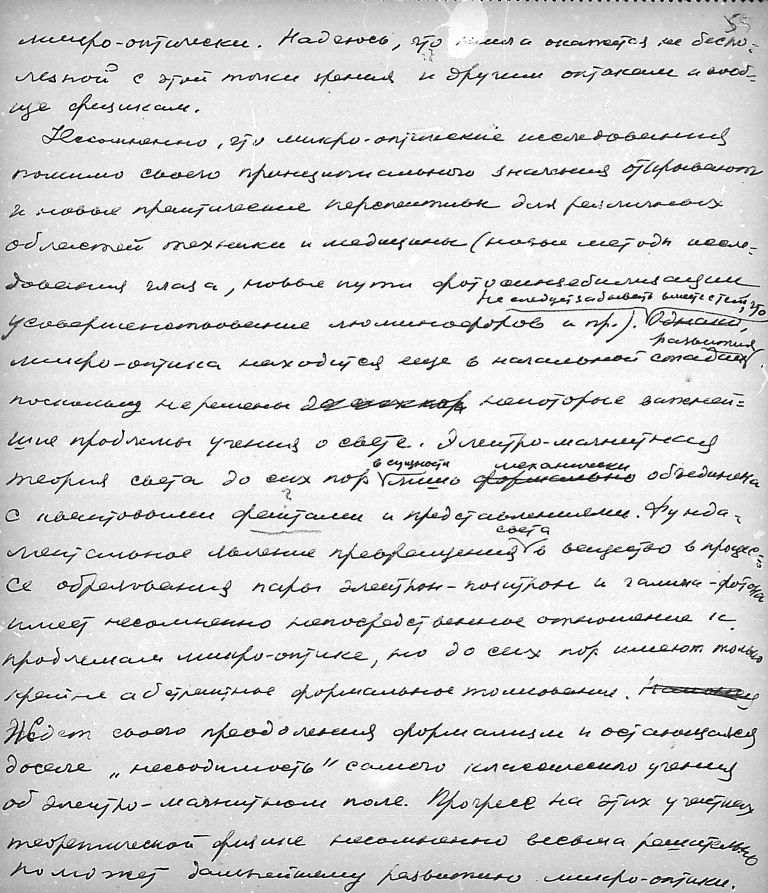 55
микро-оптически. Надеюсь, что книга окажется не беспо-
лезной с этой точки зрения и другим оптикам и вооб-
ще физикам.
Несомненно, что микро-оптические исследования
помимо своего принципиального значения открывают
и новые практические перспективы для различных
областей техники и медицины (новые методы иссле-
дования глаза, новые пути фотосенсибилизации
не следует забывать вместе с тем, что
усовершенствование люминофоров и пр.). Однако,
развития
микро-оптика находится еще в начальной стадии.
поскольку не решены до сих пор некоторые важней-
шие проблемы учения о свете. Электро-магнитная
в сущности механически
теория света до сих пор лишь формально объединена
с квантовыми фактами и представлениями. Фунда-
света
ментальное явление превращения в вещество в процес-
се образования пары электрон-позитрон из гамма-фотона
имеет несомненно непосредственное отношение к
проблемам микро-оптике, но до сих пор имеют только
крайне абстрактное формальное толкование.
Ждет своего преодоления формализм и остающаяся
доселе „несводимость" самого классического учения
об электро-магнитном поле. Прогресс на этих участках
теоретической физике несомненно весьма решительно
поможет дальнейшему развитию микро-оптики.